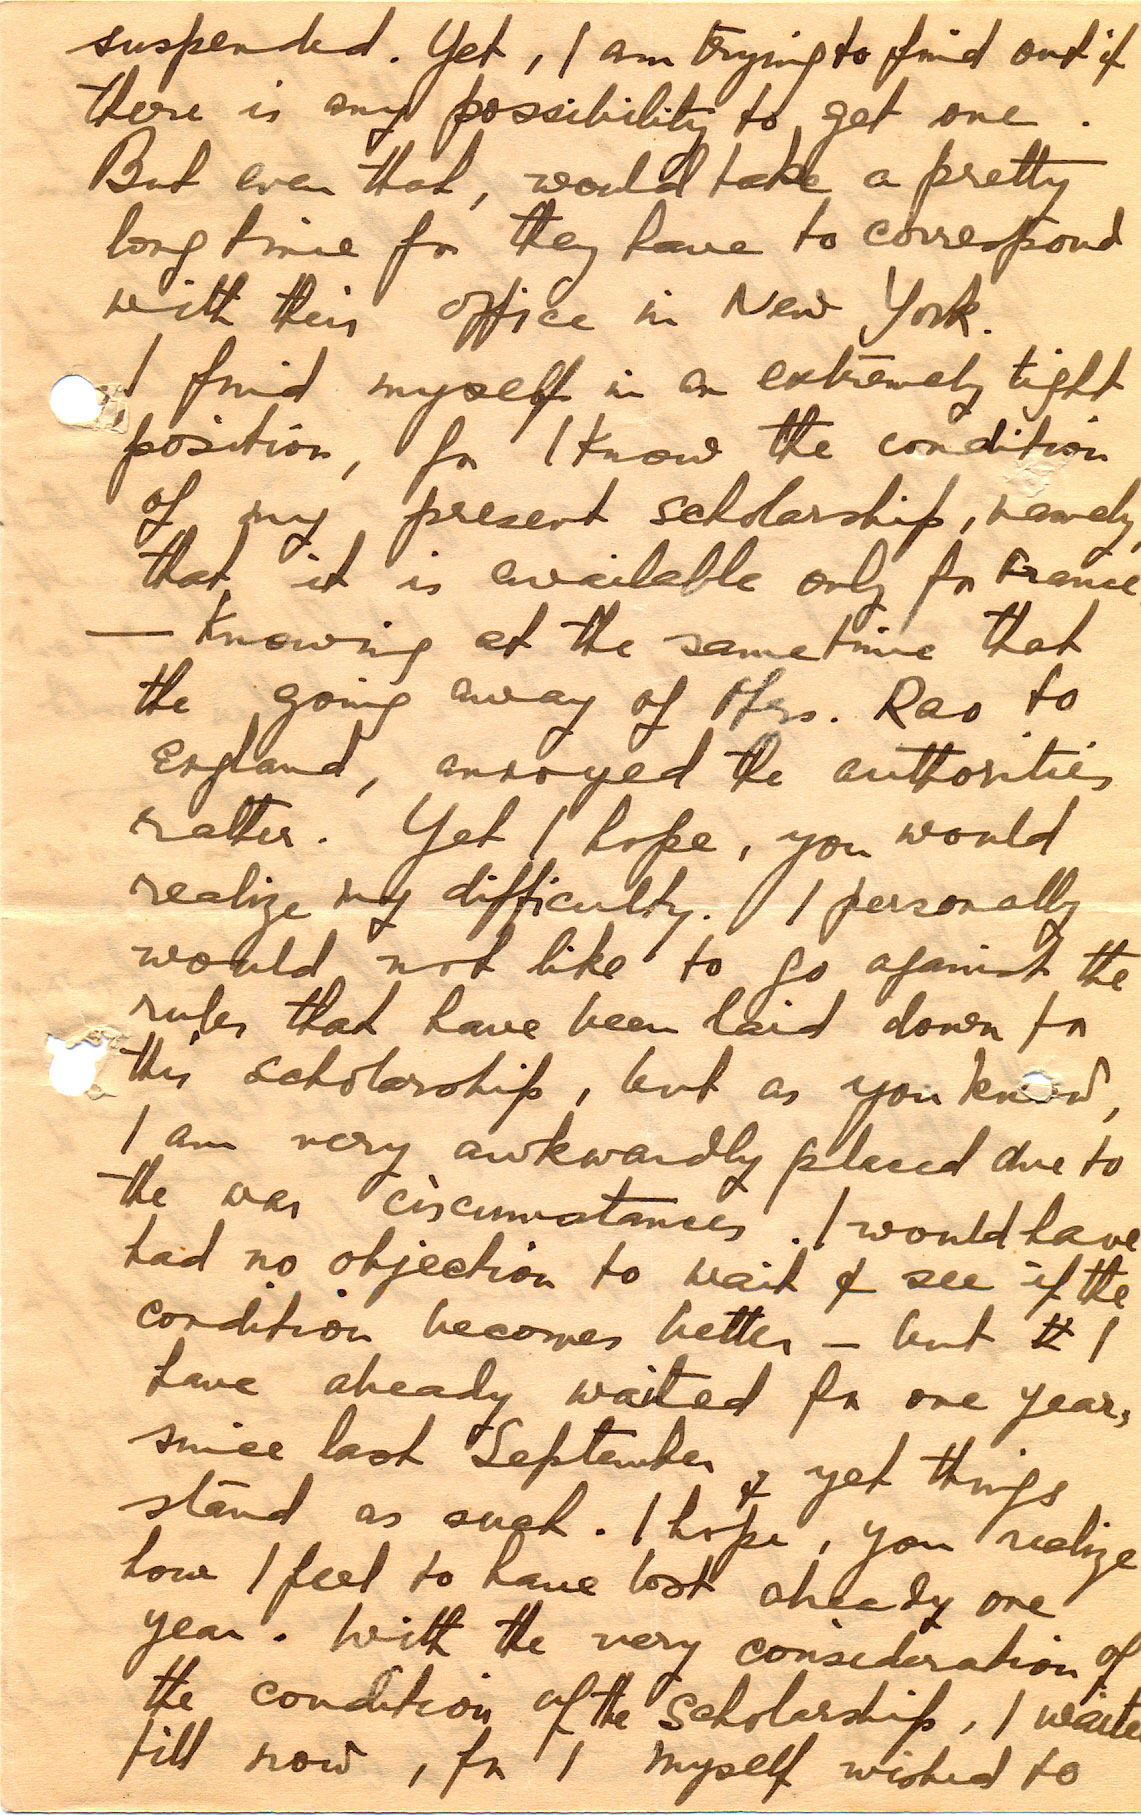 suspended. Yet, I am trying to find out if
there is any possibility to get one.
But even that, would take a pretty
long time for they have to correspond
with their office in New York.
I find myself in an extremely tight
position, for I know the condition
of my present scholarship, namely,
that it is available only for France
— Knowing at the sametime that
the going away of Mrs. Rao to
England, annoyed the authorities
rather. Yet I hope, you would
realize my difficulty. I personally
would not like to go against the
rules that have been laid down for
this scholarship, but as you know,
I am very awkwardly placed due to
the war circumstances. I would have
had no objection to wait & see if the
condition becomes better – but I
have already waited for one year,
since last September & yet things
stand as such. I hope, you realize
how I feel to have lost already one
year. With the very consideration of
the condition of the scholarship, I waited
till now, for I myself wished to